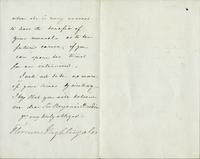 when she is very anxious
to have the benefit of
your counsels as to her
future career, if you
can spare her time
for an interview.
I will not take up more
of your time by writing.
I beg that you will believe
me dear Sir Benjamin Brodie
yr very truly obliged
Florence Nightingale